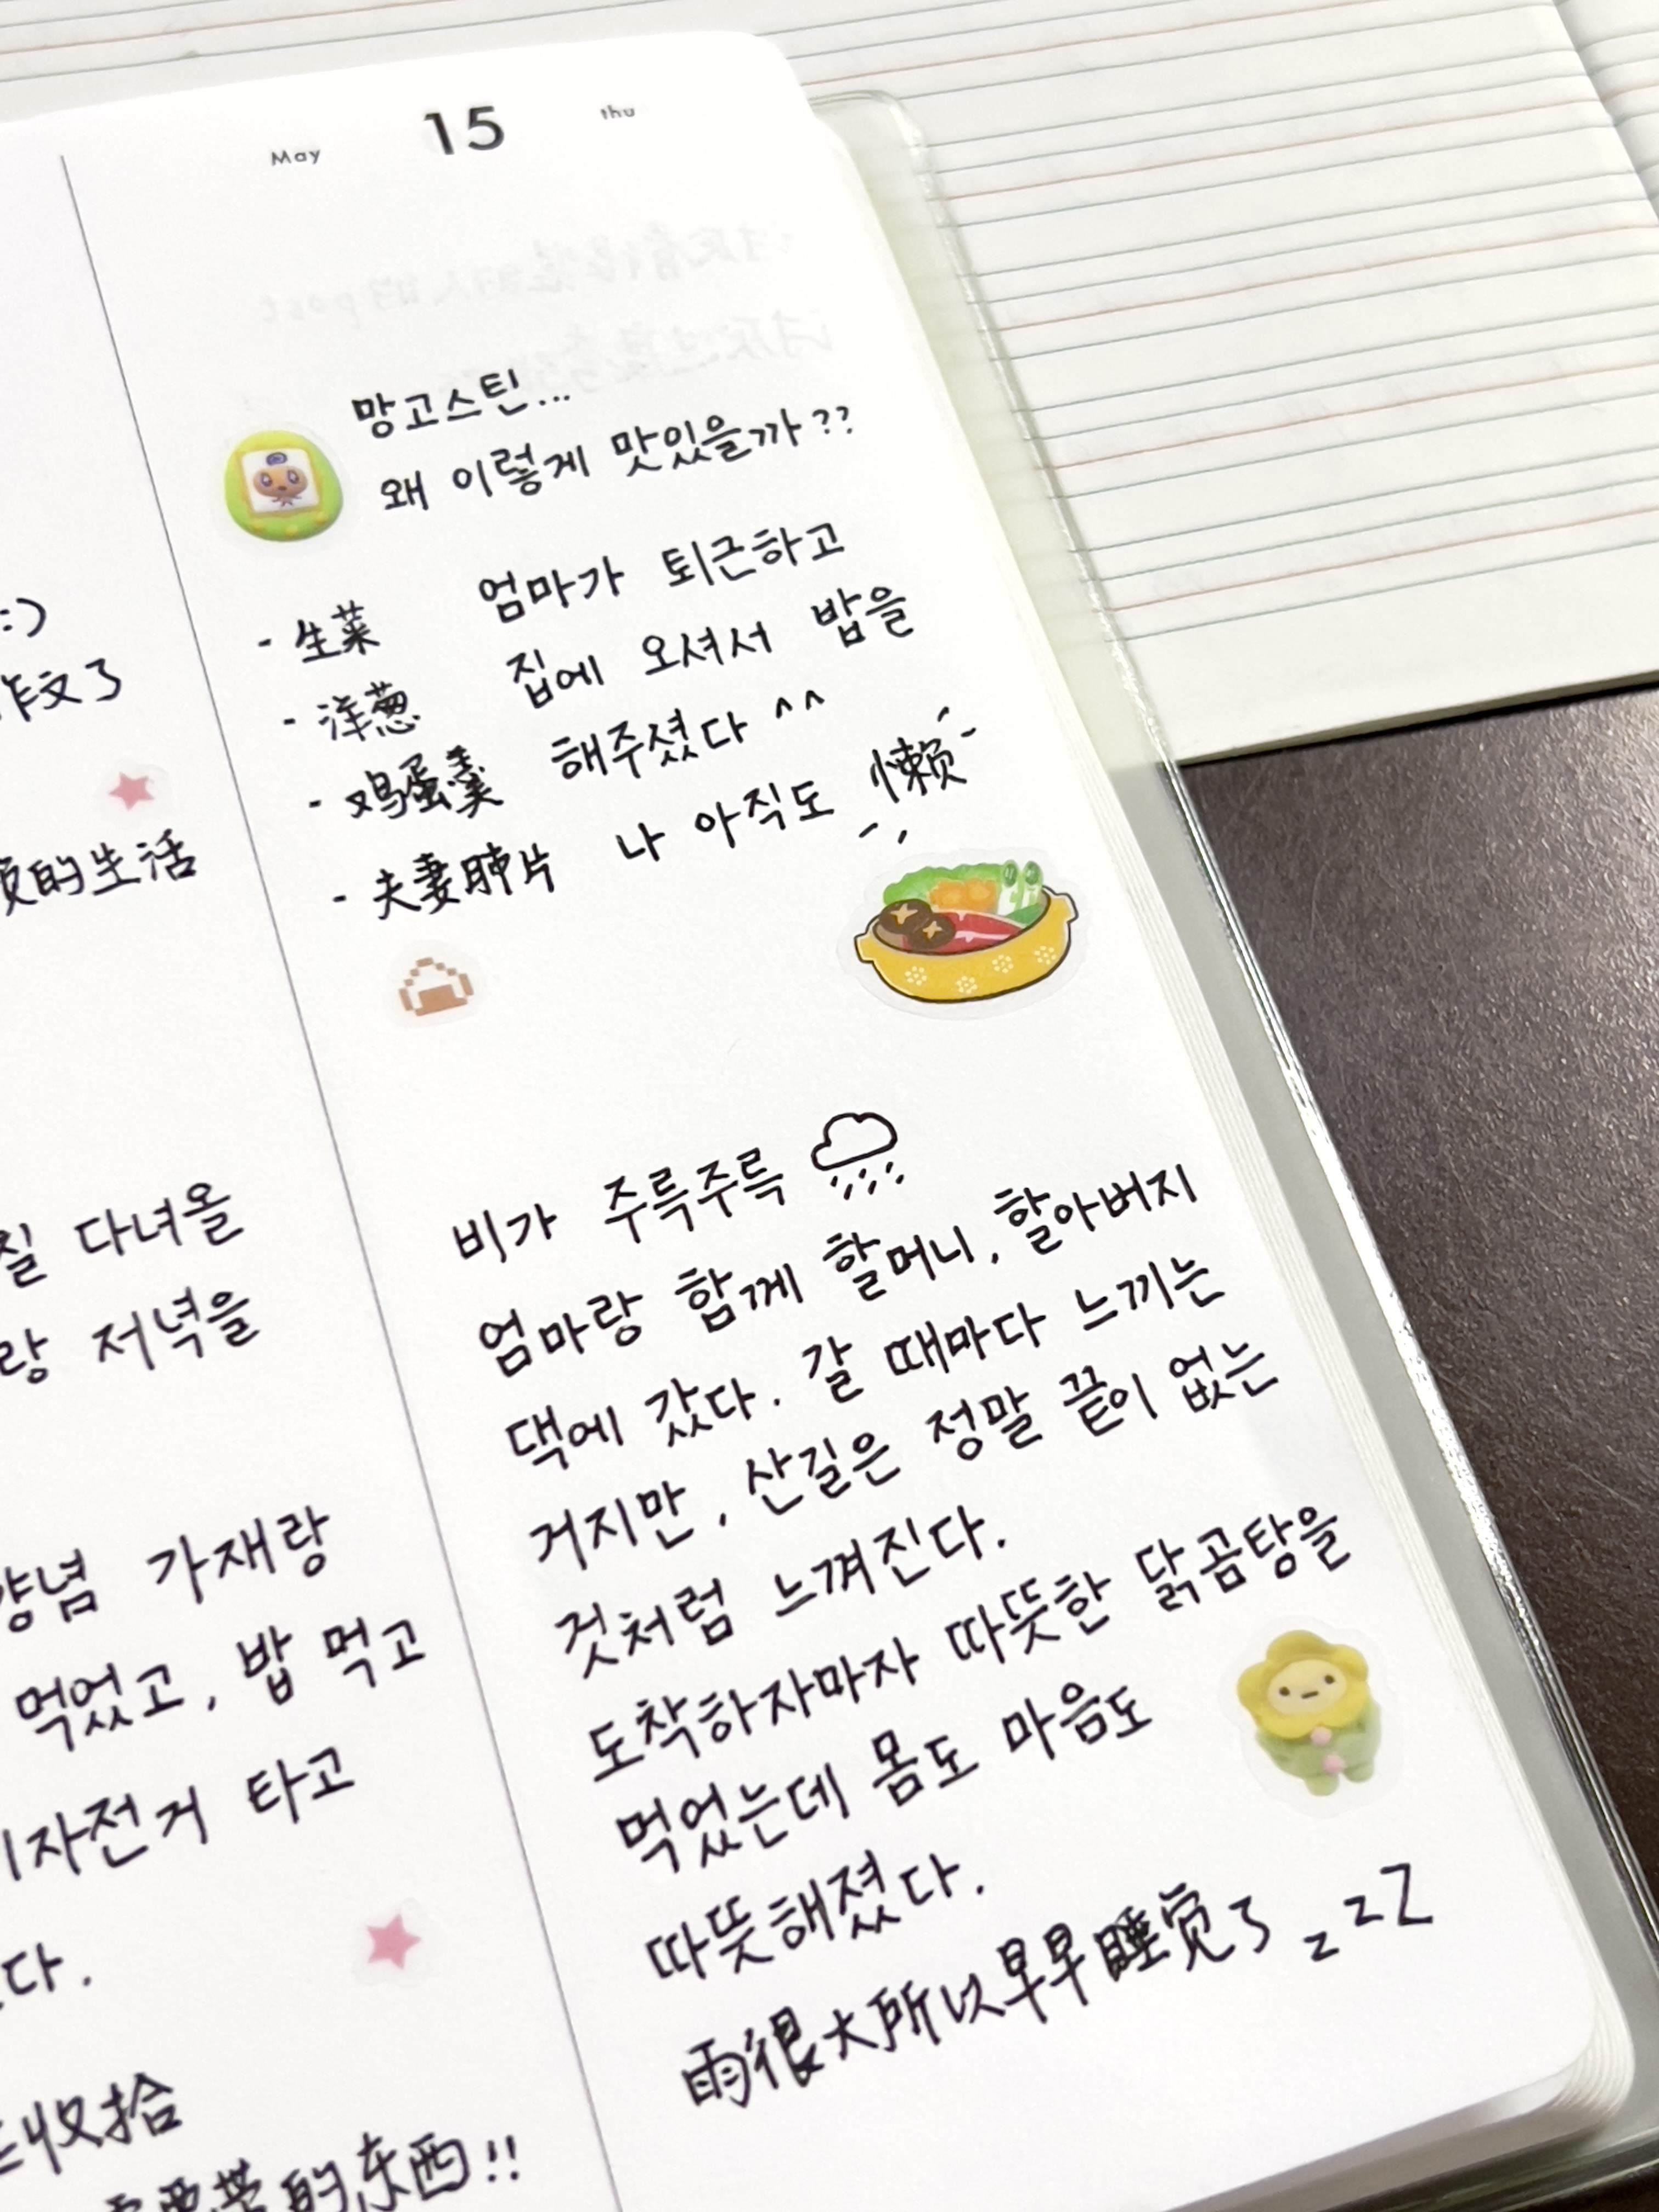 :)
作文了
的生活
칠 다녀올
랑 저녁을
양념 가재랑
먹었고, 밥 먹고
자전거 타고
다.
收拾
要带的东西!!
May 15 thu
망고스틴...
왜 이렇게 맛있을까??
- 生菜
- 洋葱
- 鸡蛋羹
- 夫妻肺片
엄마가 퇴근하고
집에 오셔서 밥을
해주셨다 ^^
나 아직도 懒
비가 주륵주륵
엄마랑 함께 할머니, 할아버지
댁에 갔다. 갈 때마다 느끼는
거지만, 산길은 정말 끝이 없는
것처럼 느껴진다.
도착하자마자 따뜻한 닭곰탕을
먹었는데 몸도 마음도
따뜻해졌다.
雨很大所以早早睡觉了 zzZ